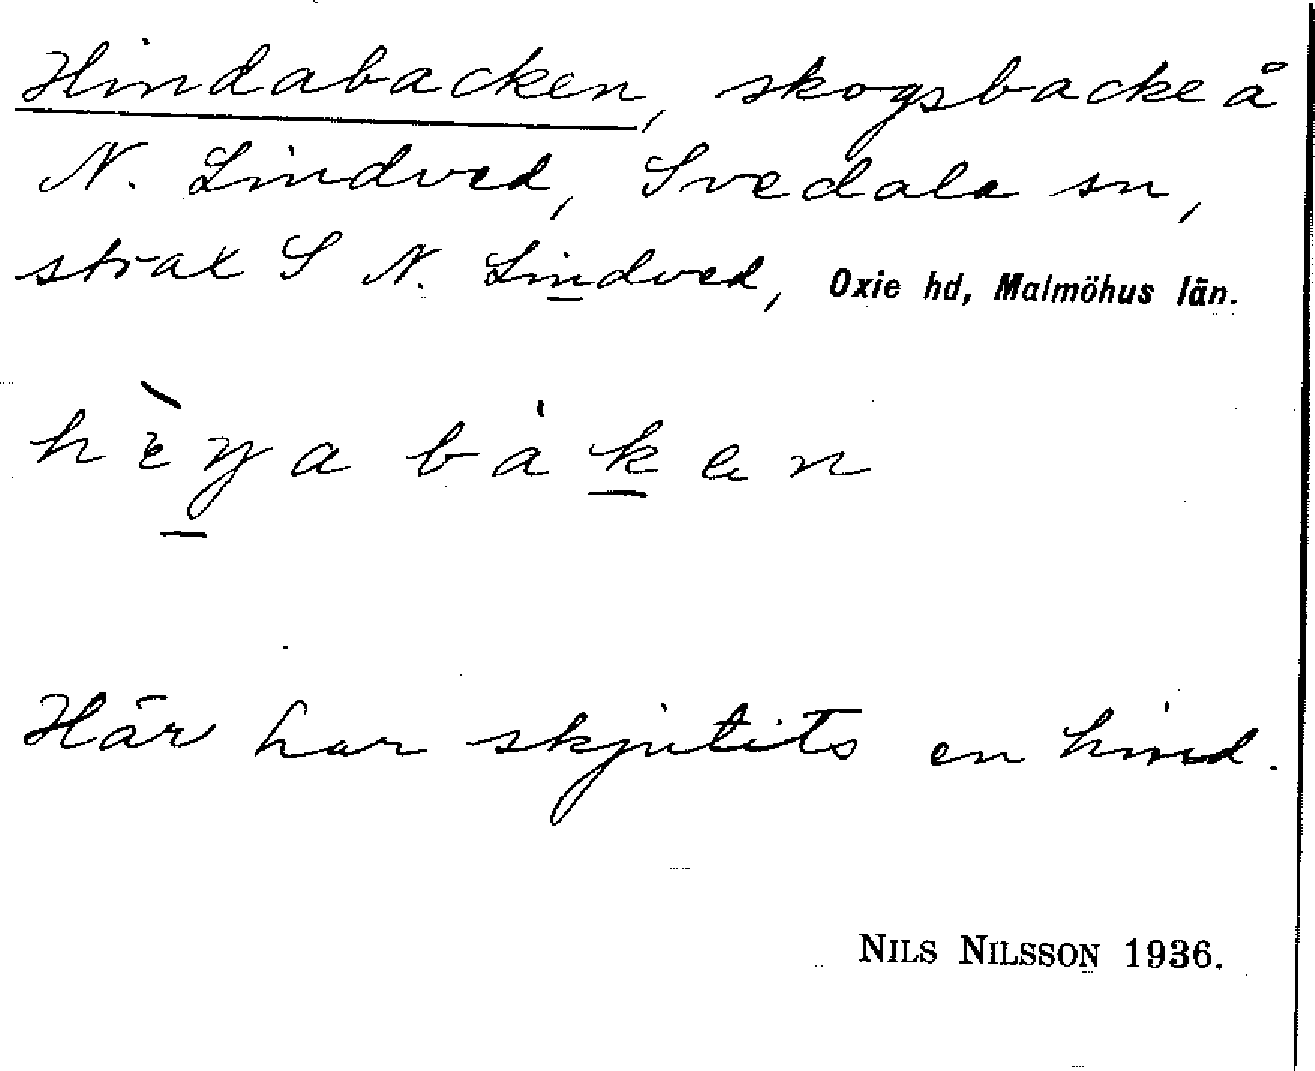 Hindabacken, skogsbacke å
N. Lindved, Svedala sn,
strax S N. Lindved, Oxie hd, Malmöhus län.
bàkan
Här har skjutits en hind.
NILS NILSSON 1936.